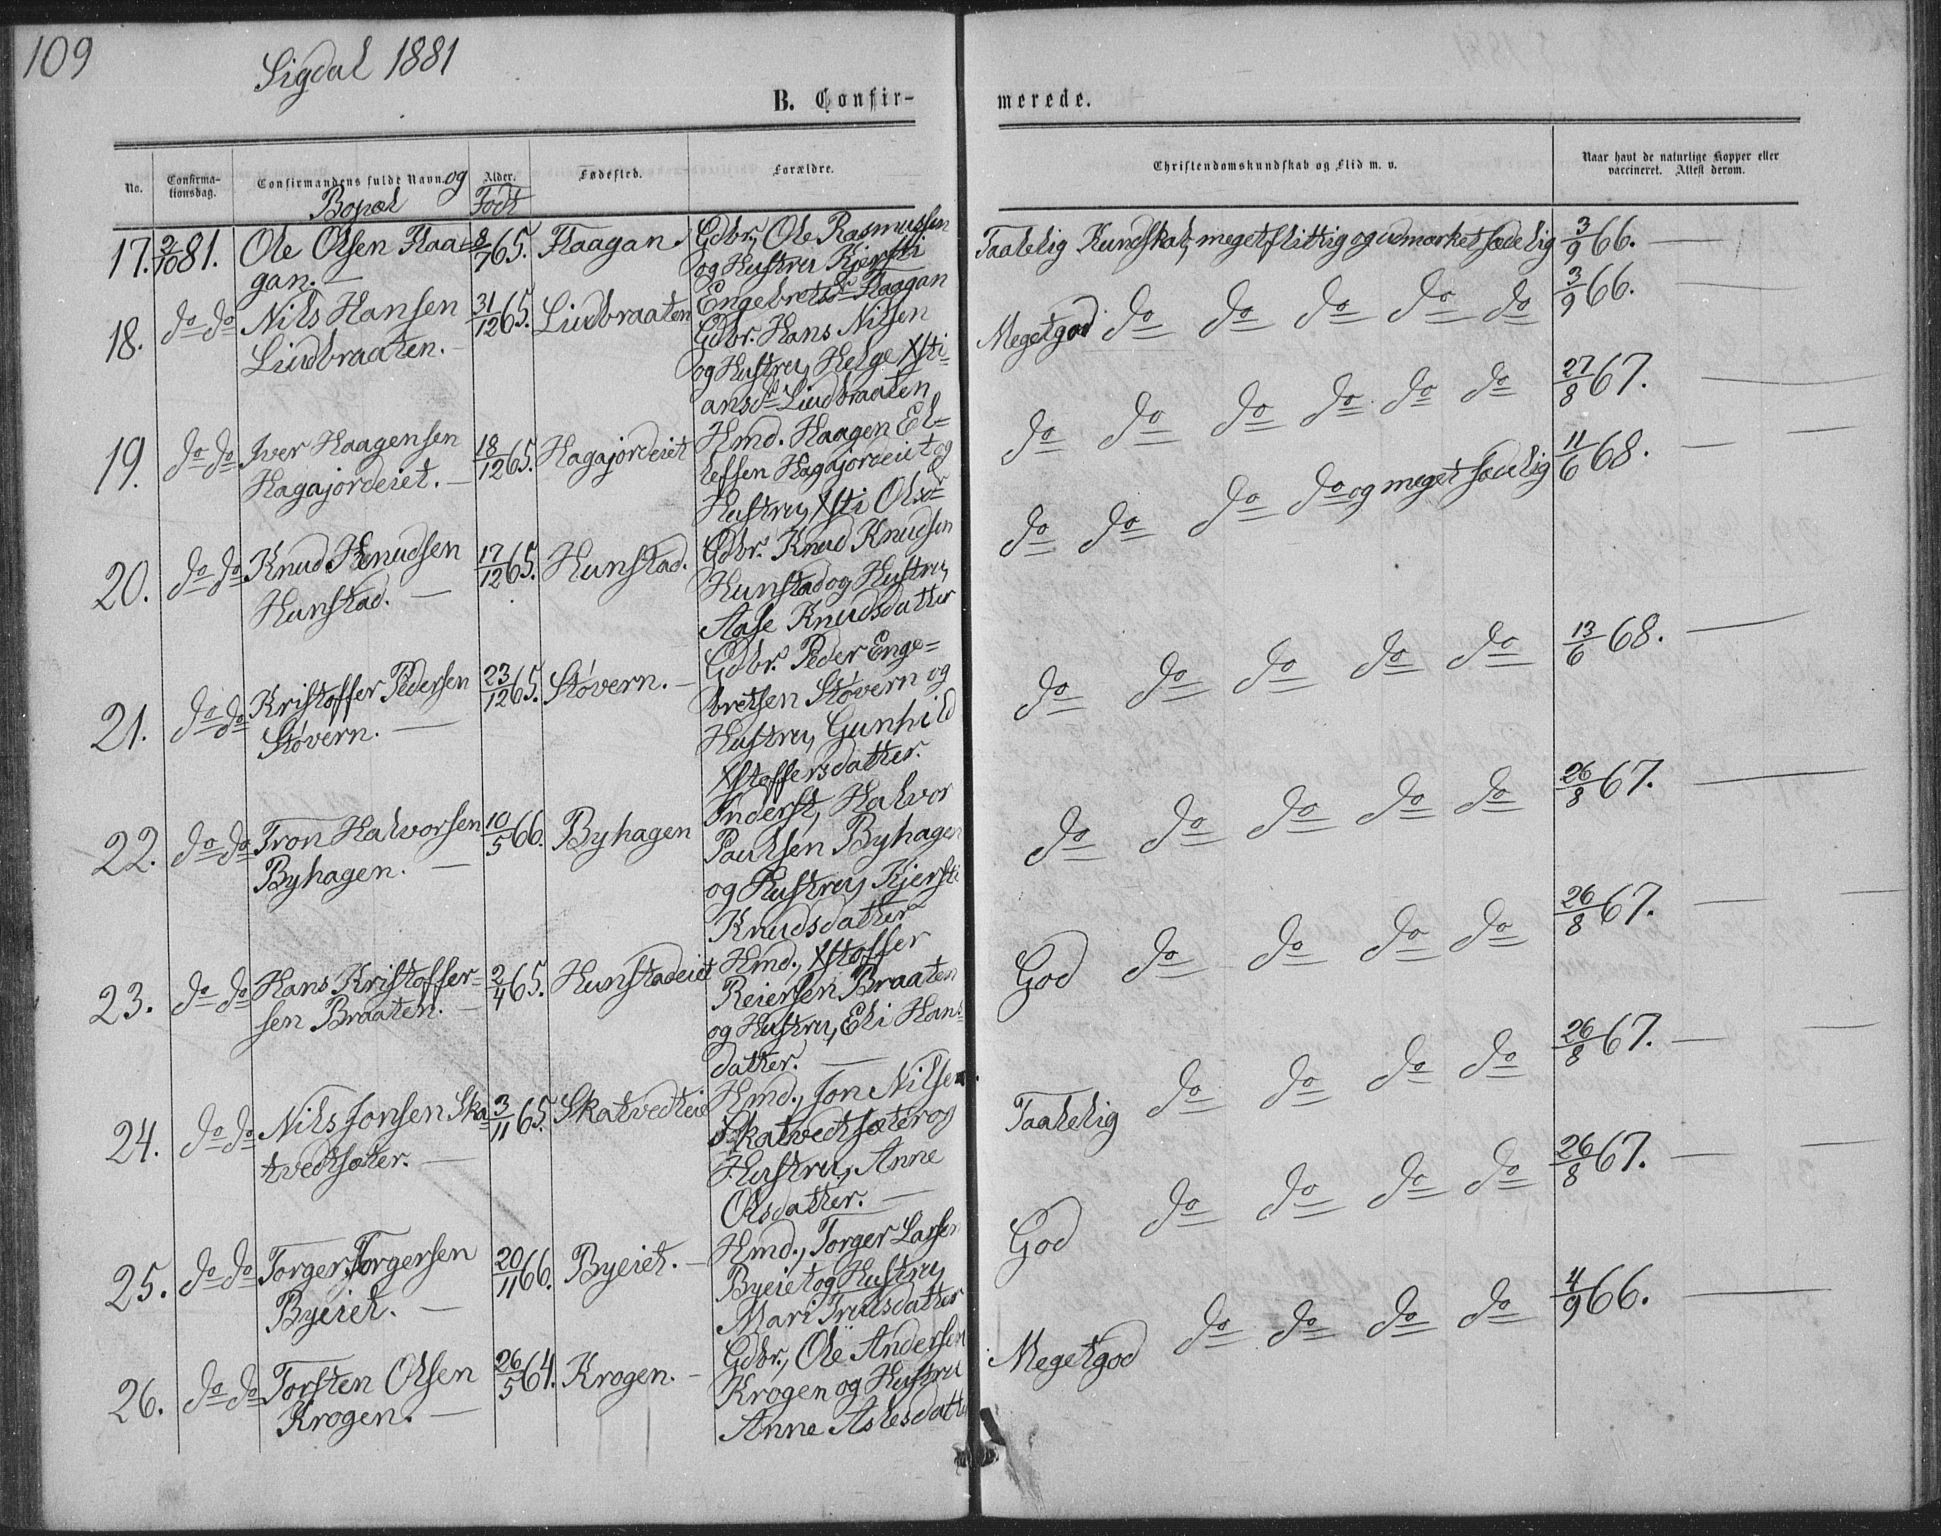 109
Sigdal 1881
B. Confir-
merede.
No.
Confirma-
tionsdag.
Confirmandens fulde Navn og
Bopæl
Alder.
Født
Fødested.
Forældre.
Christendomskundskab og Flid m. v.
Naar havt de naturlige Kopper eller
vaccineret. Attest derom.
17. 2/10 81. Ole Olsen Flaa-
gan. —
8/7 65. Flaagan
Gdbr., Ole Rasmussen
og Hustru Kjersti
Engebretsd. Flaagan
Taalelig Kundskab, meget flittig og udmærket sædelig 3/9 66. —
18. do do Nils Hansen
Lindbraaten. -
31/12 65. Lindbraaten
Gdbr. Hans Nilsen
og Hustru, Helge Xsti-
ansd. Lindbraaten
Megetgod do do do do do 3/9 66.
19. do do Iver Haagensen
Hagajordeiet. —
18/12 65. Hagajordeiet
Hmd. Haagen El=
lefsen Hagajordeiet og
Hustru, Xsti Olsd.
do do do do do do 27/8 67. —
20. do do Knud Knudsen
Hunstad. —
17/12 65. Hunstad.
Gdbr. Knud Knudsen
Hunstad og Hustru,
Aase Knudsdatter
do do do do og meget sædelig 11/6 68. —
21. do do Kristoffer Pedersen
Støvern. —
23/12 65. Støvern. —
Gdbr. Peder Enge=
bretsen Støvern og
Hustru, Gunhild
Xstoffersdatter.
do do do do do 13/6 68. —
22. do do Tron Halvorsen
Byhagen. —
10/5 66. Byhagen
Inderst, Halvor
Paulsen Byhagen
og Hustru, Kjersti
Knudsdatter
do do do do do 26/8 67. —
23. do do Hans Kristoffer-
sen Braaten. —
2/4 65. Hunstadeiet
Hmd., Xstoffer
Reiersen Braaten
og Hustru, Eli Hans
datter. —
God do do do do 26/8 67. —
24. do do Nils Jonsen Ska
tvedtsæter. —
3/11 65. Skatvedteie
Hmd., Jon Nilsen.
Skatvedtsæter og
Hustru, Anne
Olsdatter. —
Taalelig do do do do 26/8 67. —
25. do do Torger Torgersen
Byeiet. —
20/11 66. Byeiet. —
Hmd., Torger Larsen
Byeiet og Hustru
Mari Trulsdatter
God do do do do 26/8 67. —
26. do do Torsten Olsen
Krogen. —
26/5 64. Krogen. -
Gdbr., Ole Andersen
Krogen og Hustru
Anne Aslesdatte
Megetgod do do do do 4/9 66. —